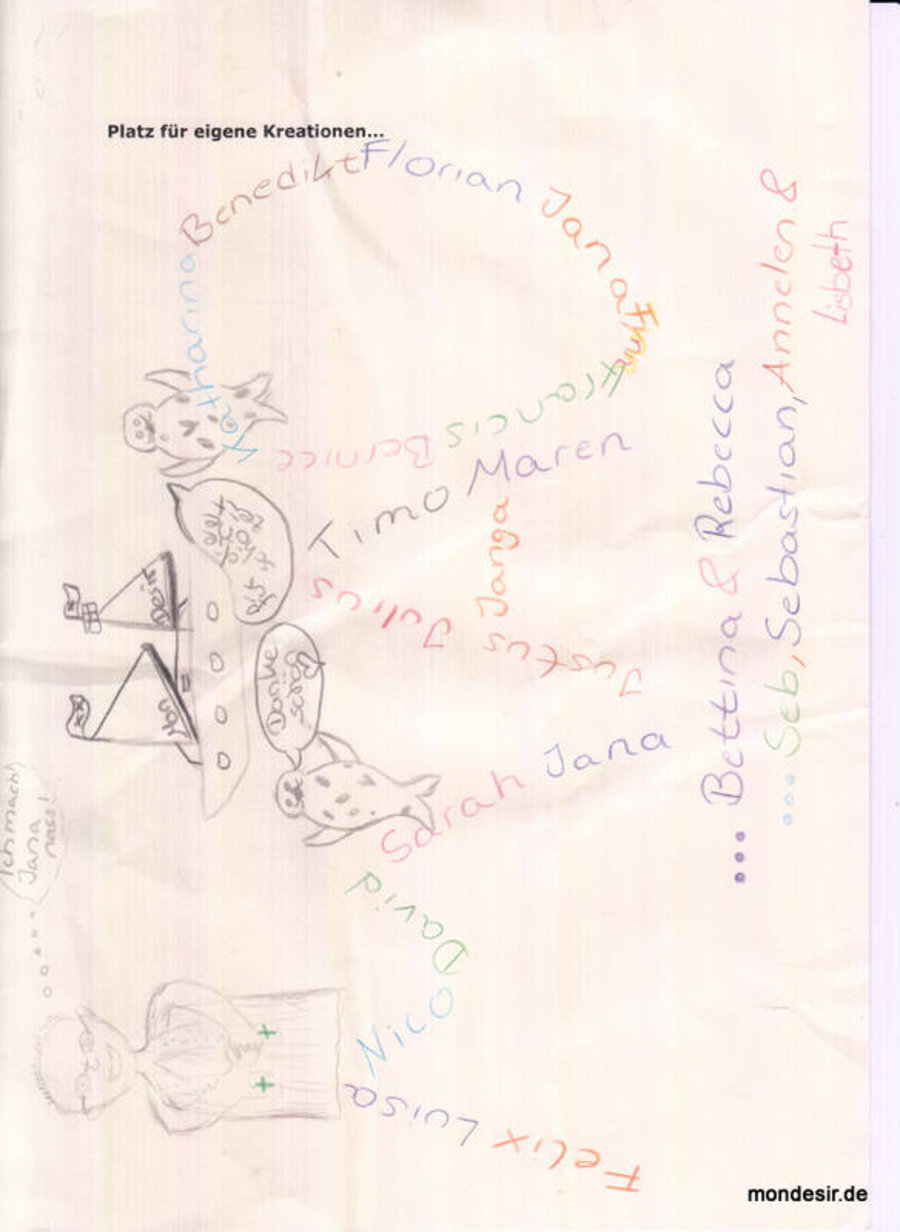 Platz für eigene Kreationen...
Katharina Benedikt Florian Jana
Francis Bernice
Timo Maren
Janga
Justus Julius
Sarah Jana
David
Nico
Luisa Felix
Mon Desir
Danke
Ich mach
Jana
nass!
... Bettina & Rebecca
... Seb, Sebastian, Annelen &
Lisbeth
mondesir.de